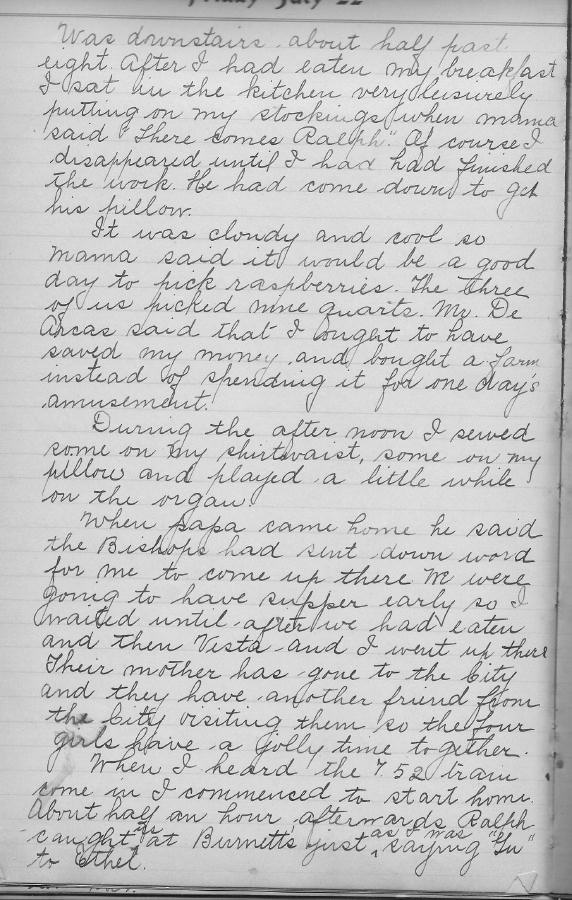 Friday July 22
Was downstairs about half past
eight. After I had eaten my breakfast
I sat in the kitchen very leisurely
putting on my stockings when mama
said "There comes Ralph." Of course I
disappeared until I had had finished
the work. He had come down to get
his pillow.
It was cloudy and cool so
mama said it would be a good
day to pick raspberries. The three
of us picked nine quarts. Mr. De
Arcas said that I ought to have
saved my money and bought a farm
instead of spending it for one day's
amusement.
During the after noon I sewed
some on my shirtwaist, some on my
pillow and played a little while
on the organ.
When papa came home he said
the Bishops had sent down word
for me to come up there We were
going to have supper early so I
waited until after we had eaten
and then Vesta and I went up there
Their mother has gone to the City
and they have another friend from
the City visiting them so the four
girls have a jolly time together.
When I heard the 7.52 train
come in I commenced to start home.
About half an hour afterwards Ralph
caught me at Burnetts just as I was saying
to Ethel.